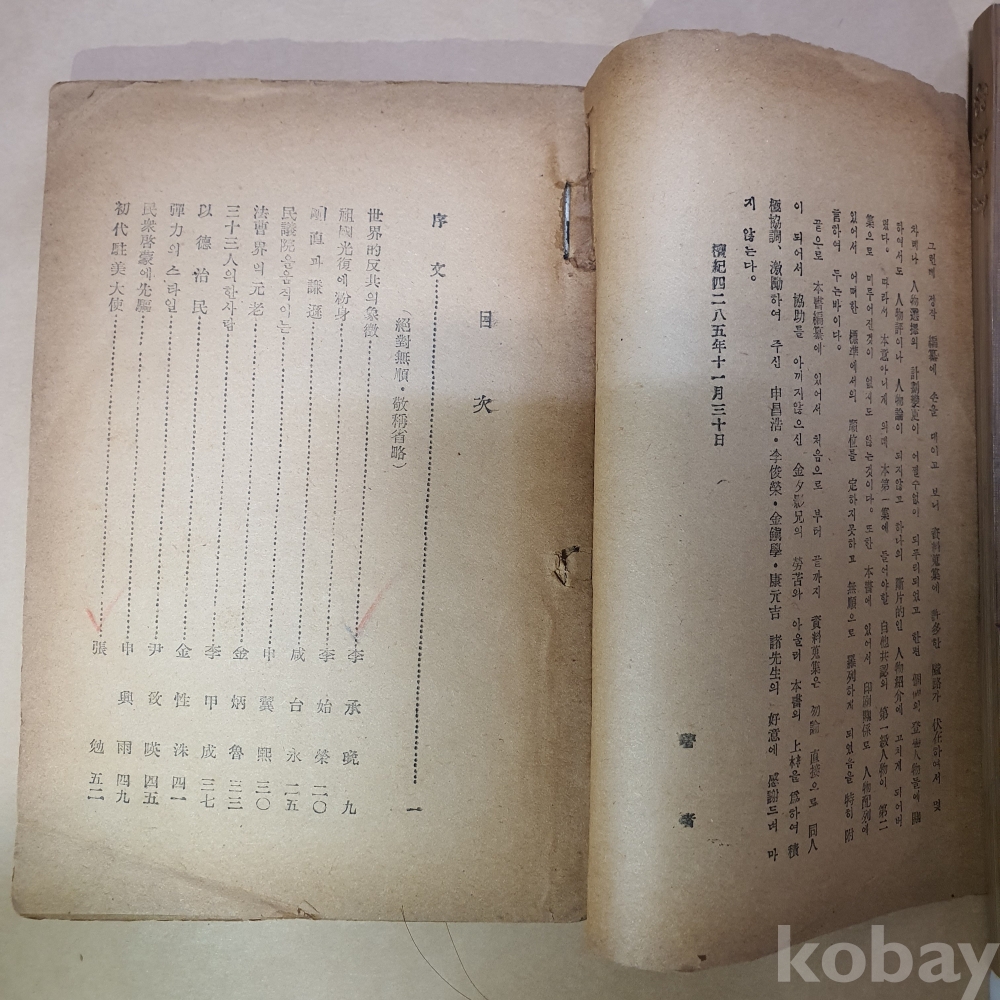 그런데 정작 編纂에 손을 대이고 보니 資料蒐集에 許多한 隘路가 伏在하여서 및
차차나 人物選擇의 計劃變更이 어찔수없이 되푸리되었고 한편 個個의 登場人物들에 關
하여서도 人物評이나 人物論이 되지않고 하나의 斷片的인 人物紹介에 고치게 되어버
렸다。 따라서 本意아니게 되며 本第一集에 들어야할 自他共認의 第一級人物이 第二
集으로 미루어진것이 없지도 않는것이다。 또한 本書에 있어서 印刷關係로 人物配列에
있어서 어떠한 標準에서의 順位를 定하지못하고 無順으로 羅列하게 되었음을 特히 附
言하여 두는바이다。
끝으로 本書編纂에 있어서 처음으로 부터 끝까지 資料蒐集은 勿論 直接으로 同人
이 되어서 協助를 아끼지않으신 金夕影兄의 勞苦와 아울러 本書의 上梓을 爲하여 積
極協調、激勵하여 주신 申昌浩·李俊榮·金鎭學·康元吉 諸先生의 好意에 感謝드려 마
지 않는다。
檀紀四二八五年十一月三十日
著者
目次
序文 一
(絕對無順·敬稱省略)
世界的反共의象徵 李承晩 九
祖國光復에粉身 李始榮 二〇
剛直과謙遜 咸台永 二五
民議院을움직이는 申翼熙 三〇
法曹界의元老 金炳魯 三三
三十三人의한사람 李甲成 三七
以德治民 金性洙 四一
彈力의스타일 尹致暎 四五
民衆啓蒙에先驅 申興雨 四九
初代駐美大使 張勉 五二
kobay